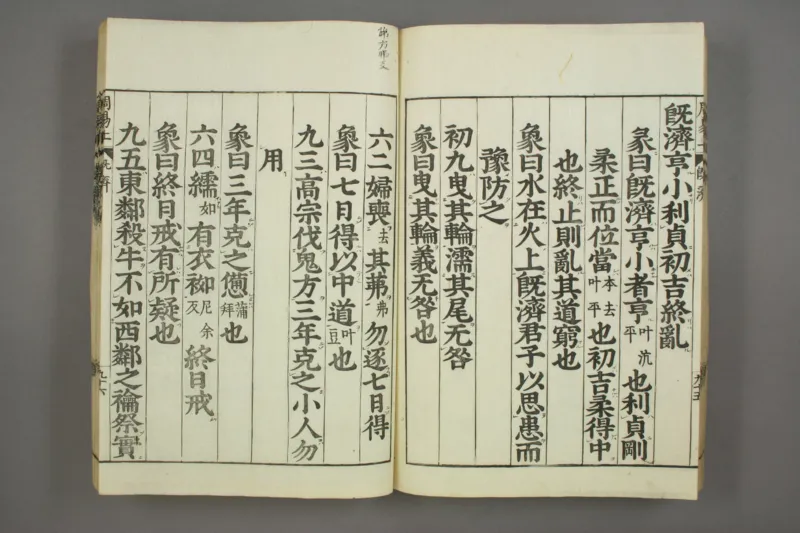 既濟亨小利貞初吉終亂
彖曰既濟亨小者亨叶平也利貞剛
柔正而位當本去叶平也初吉柔得中
也終止則亂其道窮也
象曰水在火上既濟君子以思患而
豫防之
初九曳其輪濡其尾无咎
象曰曳其輪義无咎也
六二婦喪去其茀弗勿逐七日得
象曰七日得以中道叶豆也
九三高宗伐鬼方三年克之小人勿
用
象曰三年克之憊蒲拜也
六四繻如有衣袽尼余反終日戒
象曰終日戒有所疑也
九五東鄰殺牛不如西鄰之禴祭實
九十五
九十六